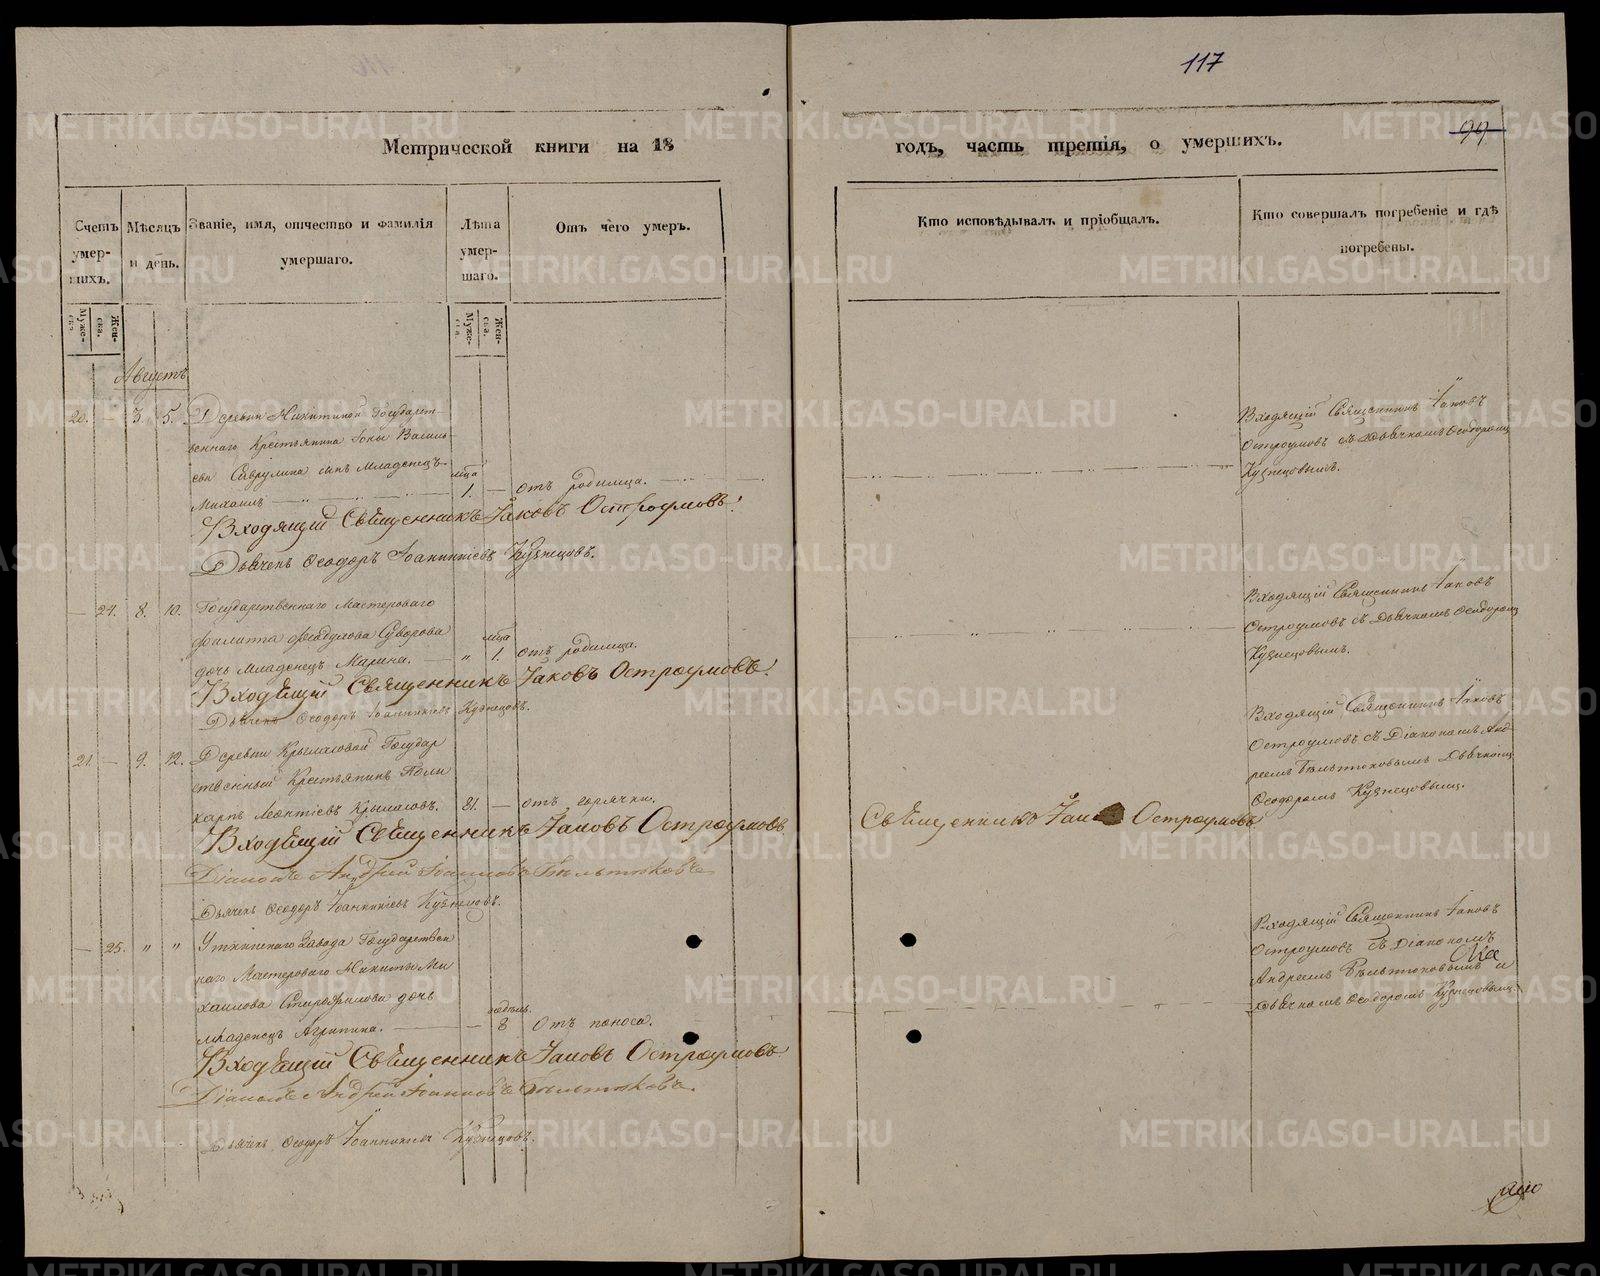 117
99
Метрической книги на 18
годъ, часть третія, о умершихъ.
Счетъ умер-шихъ.
Мѣсяцъ и день.
Званіе, имя, отчество и фамилія умершаго.
Лѣта умер-шаго.
Отъ чего умеръ.
Кто исповѣдывалъ и пріобщалъ.
Кто совершалъ погребеніе и гдѣ погребены.
Муже-ска.
Жен-ска.
Муже-ска.
Жен-ска.
Августъ
20. — 3. 5. Деревни Никитиной Государст-
веннаго Крестьянина Іоны Василь-
ева сынъ младенецъ
Михаилъ
мца
1. — отъ родимца.
Входящій Священникъ Іаковъ
Остроумовъ съ Дьячкомъ Ѳеодоромъ
Кузнецовымъ.
Входящій Священникъ Іаковъ Остроумовъ.
Дьячекъ Ѳеодоръ Іоанникіевъ Кузнецовъ.
— 24. 8. 10. Государственнаго Мастероваго
Филиппа Суворова
дочь младенецъ Марина. — "
мца
1. отъ родимца.
Входящій Священникъ Іаковъ
Остроумовъ съ Дьячкомъ Ѳеодоромъ
Кузнецовымъ.
Входящій Священникъ Іаковъ Остроумовъ.
Дьячекъ Ѳеодоръ Іоанникіевъ Кузнецовъ.
21. — 9. 12. Деревни Крыласовой Государ
ственный Крестьянинъ Поли
карпъ Леонтіевъ Крыласовъ. 81. — отъ горячки.
Священникъ Остроумовъ
Входящій Священникъ Іаковъ
Остроумовъ съ Діакономъ Анд-
реемъ Бѣльтюковымъ Дьячкомъ
Ѳеодоромъ Кузнецовымъ.
Входящій Священникъ Іаковъ Остроумовъ
Діаконъ Андрей Іоанновъ Бѣльтюковъ
Дьячекъ Ѳеодоръ Іоанникіевъ Кузнецовъ.
— 25. " " Уткинскаго Завода Государствен
наго Мастероваго Никиты Ми
хаилова дочь
младенецъ Агрипина.
недѣль.
8 Отъ поноса.
Входящій Священникъ Іаковъ
Остроумовъ съ Діакономъ
Андреемъ Бѣльтюковымъ и
Дьячкомъ Ѳеодоромъ Кузнецовымъ.
Входящій Священникъ Іаковъ Остроумовъ
Діаконъ Андрей Іоанновъ Бѣльтюковъ.
Дьячекъ Ѳеодоръ Іоанникіевъ Кузнецовъ.
METRIKI.GASO-URAL.RU